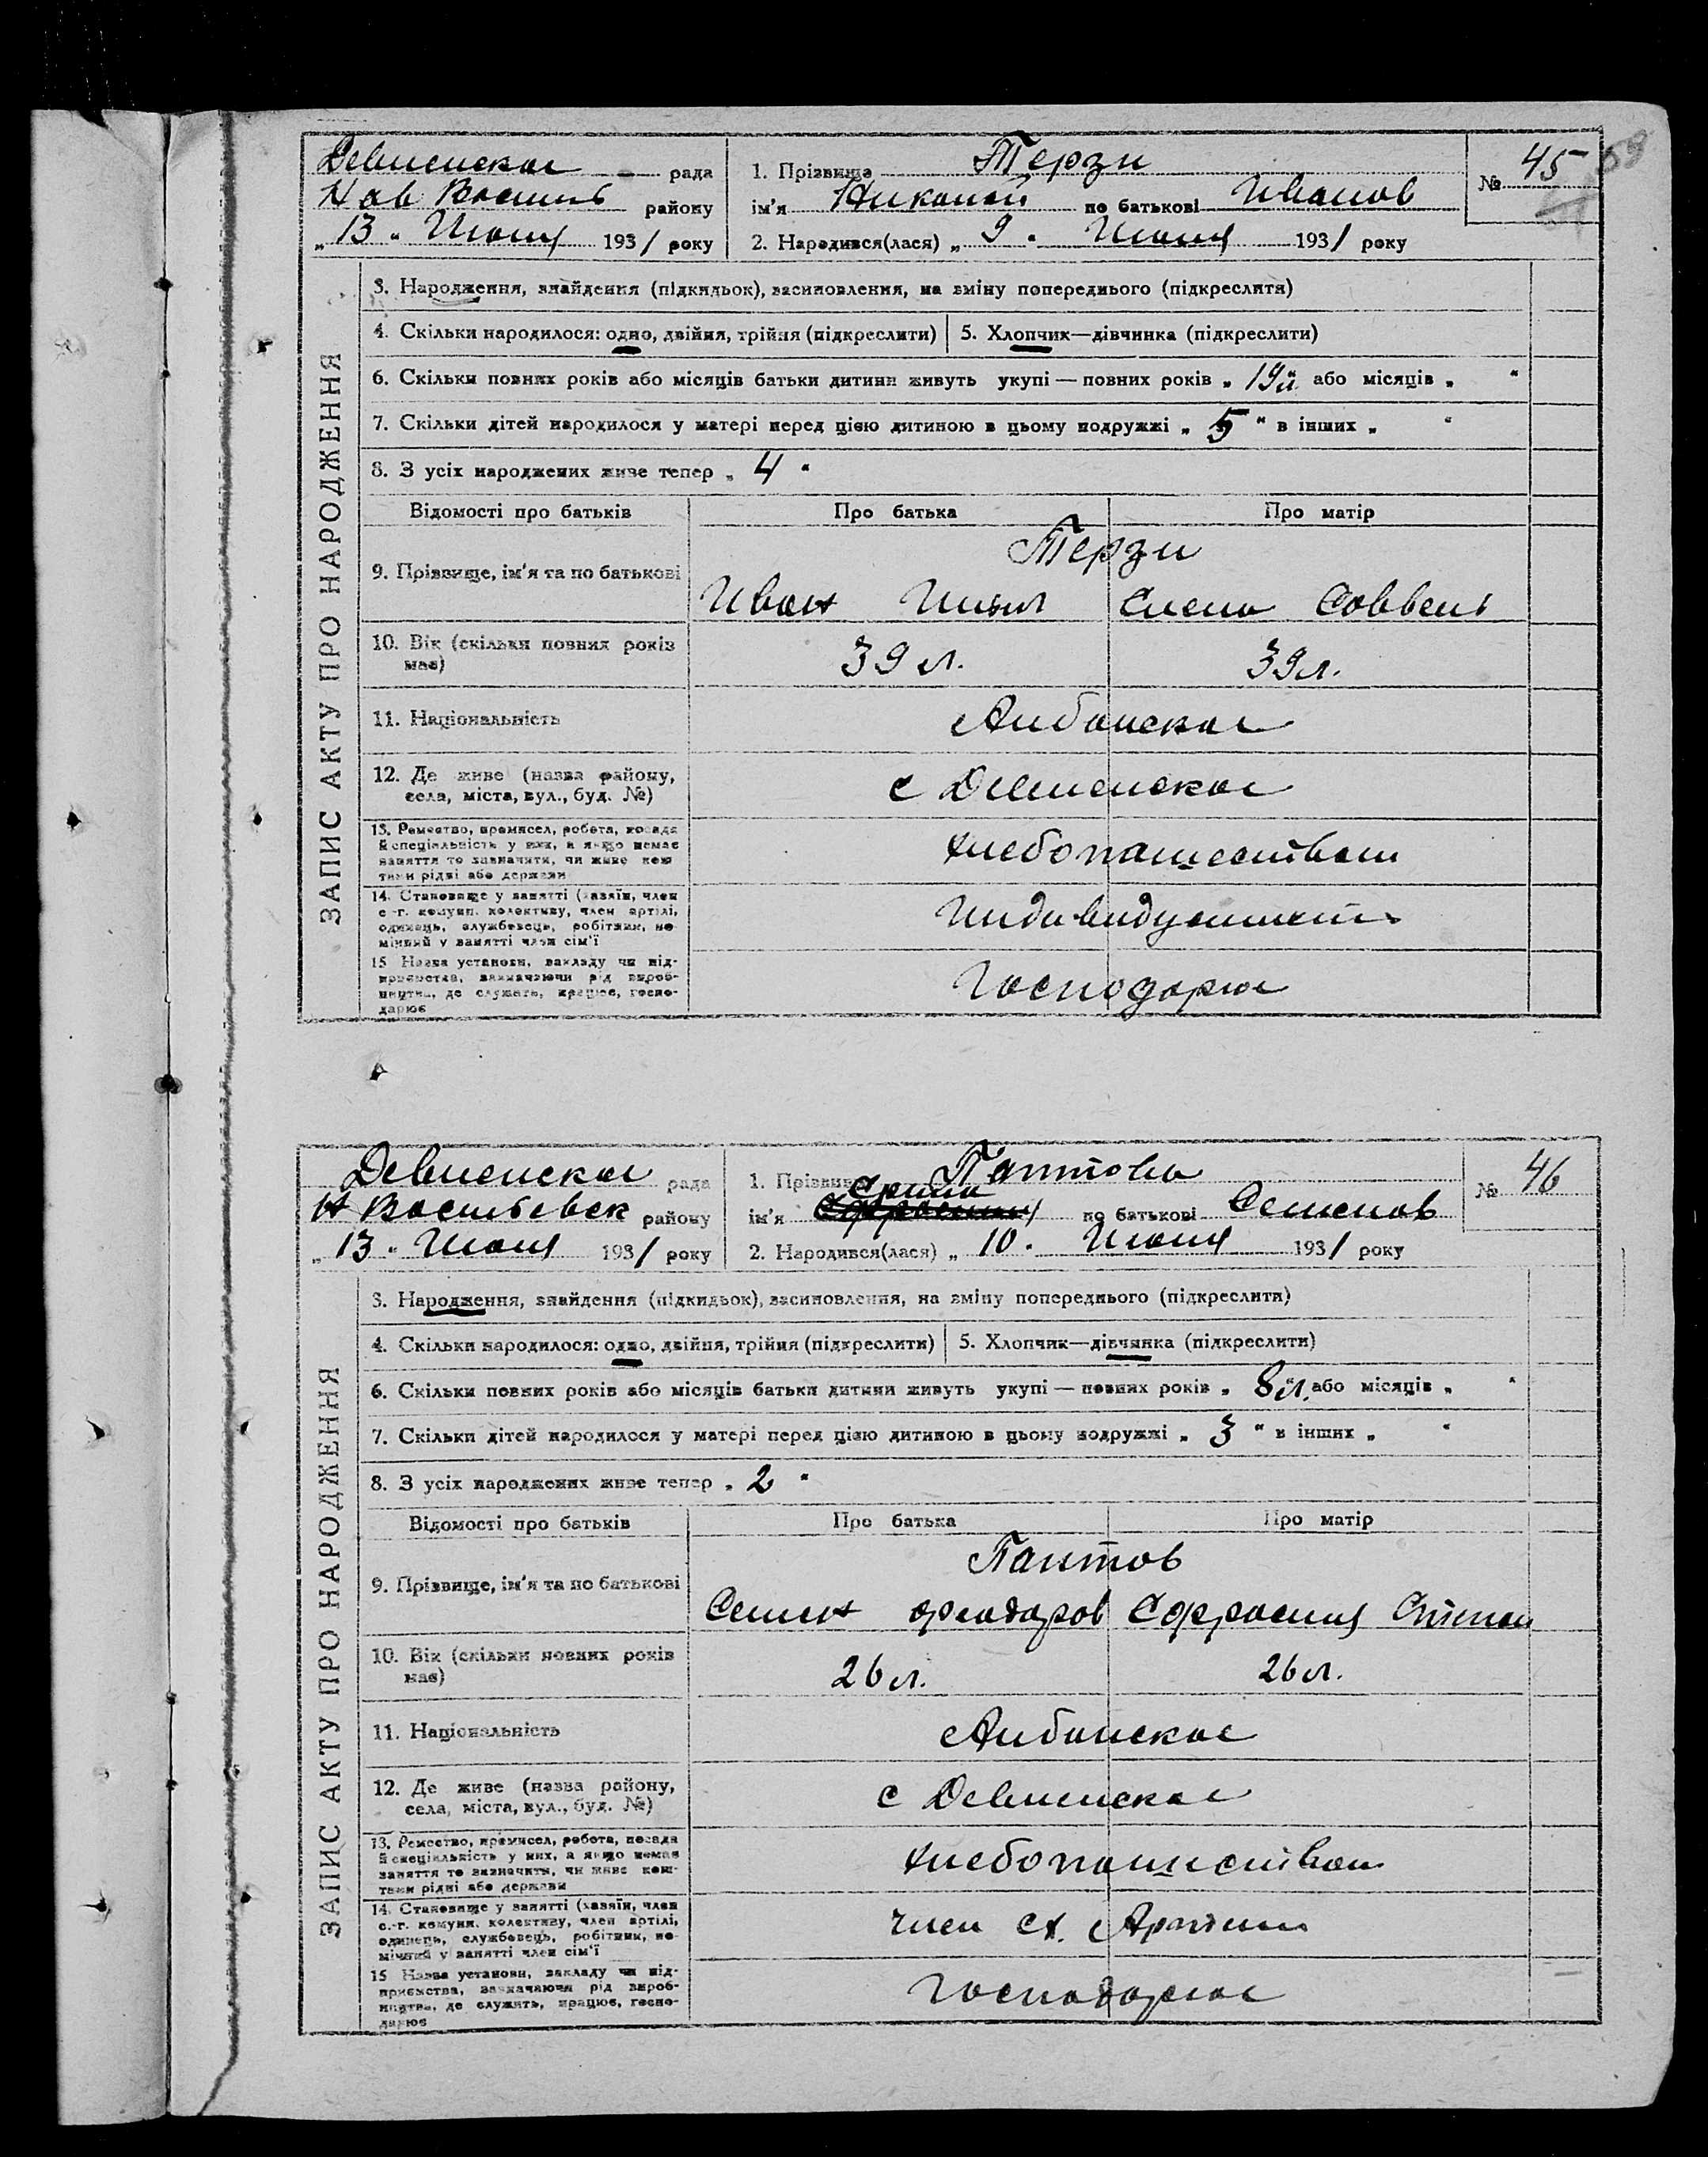 Девненское рада
Нов Василь району
„ 13 " Июня 1931 року
1. Прізвище Терзи
ім'я Николай по батькові Иванов
2. Народився(лася) „ 9 " Июня 1931 року
№ 45
59
ЗАПИС АКТУ ПРО НАРОДЖЕННЯ
3. Народження, знайдення (підкидьок), засиновлення, на зміну попереднього (підкреслити)
4. Скільки народилося: одно, двійня, трійня (підкреслити) 5. Хлопчик—дівчинка (підкреслити)
6. Скільки повних років або місяців батьки дитини живуть укупі — повних років „ 19 л. або місяців „ "
7. Скільки дітей народилося у матері перед цією дитиною в цьому подружжі „ 5 " в інших „ "
8. З усіх народжених живе тепер „ 4 "
Відомості про батьків Про батька Про матір
9. Прізвище, ім'я та по батькові
Терзи
Иван Ильич Елена Саввень
10. Вік (скільки повних років має) 39 л. 39 л.
11. Національність Албанская
12. Де живе (назва району, села, міста, вул., буд. №) с Девненское
13. Ремество, промисел, робота, посада
й спеціяльність у них, а якщо немає
заняття то зазначити, чи живе кош-
тами рідні або держави
Хлебопашеством
14. Становище у занятті (хазяїн, член
с.-г. комуни, колективу, член артілі,
одинець, службовець, робітник, по-
мічний у занятті член сім'ї
Индивидуалист
15 Назва установи, закладу чи під-
приємства, зазначаючи рід вироб-
ництва, де служить, працює, госпо-
дарює
Господарює
Девненское рада
Н Васильевск району
„ 13 " Июня 1931 року
1. Прізвище Пантова
ім'я по батькові Семенов
2. Народився(лася) „ 10 " Июня 1931 року
№ 46
ЗАПИС АКТУ ПРО НАРОДЖЕННЯ
3. Народження, знайдення (підкидьок), засиновлення, на зміну попереднього (підкреслити)
4. Скільки народилося: одно, двійня, трійня (підкреслити) 5. Хлопчик—дівчинка (підкреслити)
6. Скільки повних років або місяців батьки дитини живуть укупі — повних років „ 8 л. або місяців „ "
7. Скільки дітей народилося у матері перед цією дитиною в цьому подружжі „ 3 " в інших „ "
8. З усіх народжених живе тепер „ 2 "
Відомості про батьків Про батька Про матір
9. Прізвище, ім'я та по батькові
Пантов
Семен Феодоров Ефросиния Степан
10. Вік (скільки повних років має) 26 л. 26 л.
11. Національність Албанское
12. Де живе (назва району, села, міста, вул., буд. №) с Девненское
13. Ремество, промисел, робота, посада
й спеціяльність у них, а якщо немає
заняття то зазначити, чи живе кош-
тами рідні або держави
Хлебопашеством
14. Становище у занятті (хазяїн, член
с.-г. комуни, колективу, член артілі,
одинець, службовець, робітник, по-
мічний у занятті член сім'ї
член сх. Артели
15 Назва установи, закладу чи під-
приємства, зазначаючи рід вироб-
ництва, де служить, працює, госпо-
дарює
Господарює